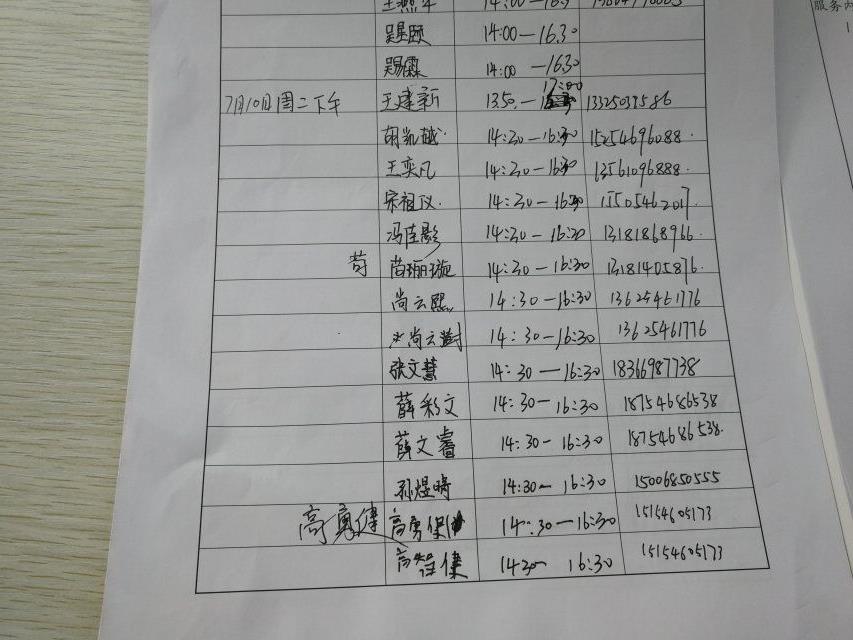 14:00-16:30
14:00-16.30
14:00 -16.30
7月10日周二下午 王建新 13:50.-17:00 13325039586
胡凯越 14:30-16:30 15254696088.
王奕凡 14:30-16:30 13561096888.
宋祖仪. 14:30-16:30 15505462017.
冯佳影 14:30-16:30 13181868966.
苟 苟珊璇 14:30-16:30 13181405876.
尚云熙 14:30-16:30 13625461776
尚云澍 14:30-16:30 13625461776
张文慧 14:30-16:30 18366987738
薛彩文 14:30-16:30 18754686538
薛文睿 14:30-16:30 18754686538.
孙煜晴 14:30-16:30 15006850555
高勇健 高勇保 14:30-16:30 15154605173
高智健 1430- 16:30 15154605173
服务内